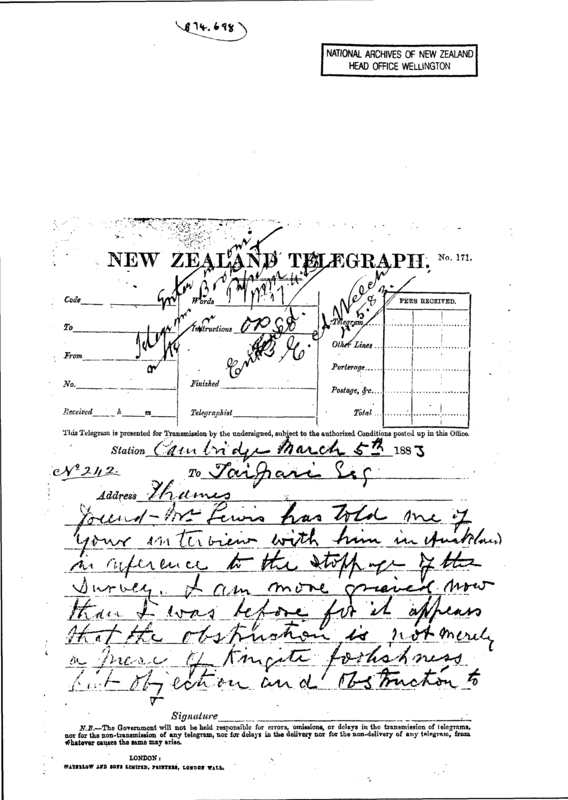 874.698
NATIONAL ARCHIVES OF NEW ZEALAND
HEAD OFFICE WELLINGTON
NEW ZEALAND TELEGRAPH.
No. 171.
Enter in
Telegram Book
Entered.
E. Welch
5.83.
Code
Words
FEES RECEIVED.
To
Instructions
Telegram
Other Lines
From
Porterage
No.
Finished
Postage, &c.
Received h m
Telegraphist
Total
This Telegram is presented for Transmission by the undersigned, subject to the authorized Conditions posted up in this Office.
Station Cambridge March 5th 1883
No 242. To Taipari Esq
Address Thames
Friend - Mr Lewis has told me of
your interview with him in Auckland
in reference to the stoppage of the
Survey. I am more grieved now
than I was before for it appears
that the obstruction is not merely
a of Kingite foolishness
but objection and obstruction to
Signature
N.B.—The Government will not be held responsible for errors, omissions, or delays in the transmission of telegrams,
nor for the non-transmission of any telegram, nor for delays in the delivery nor for the non-delivery of any telegram, from
whatever causes the same may arise.
LONDON:
WATERLOW AND SONS LIMITED, PRINTERS, LONDON WALL.